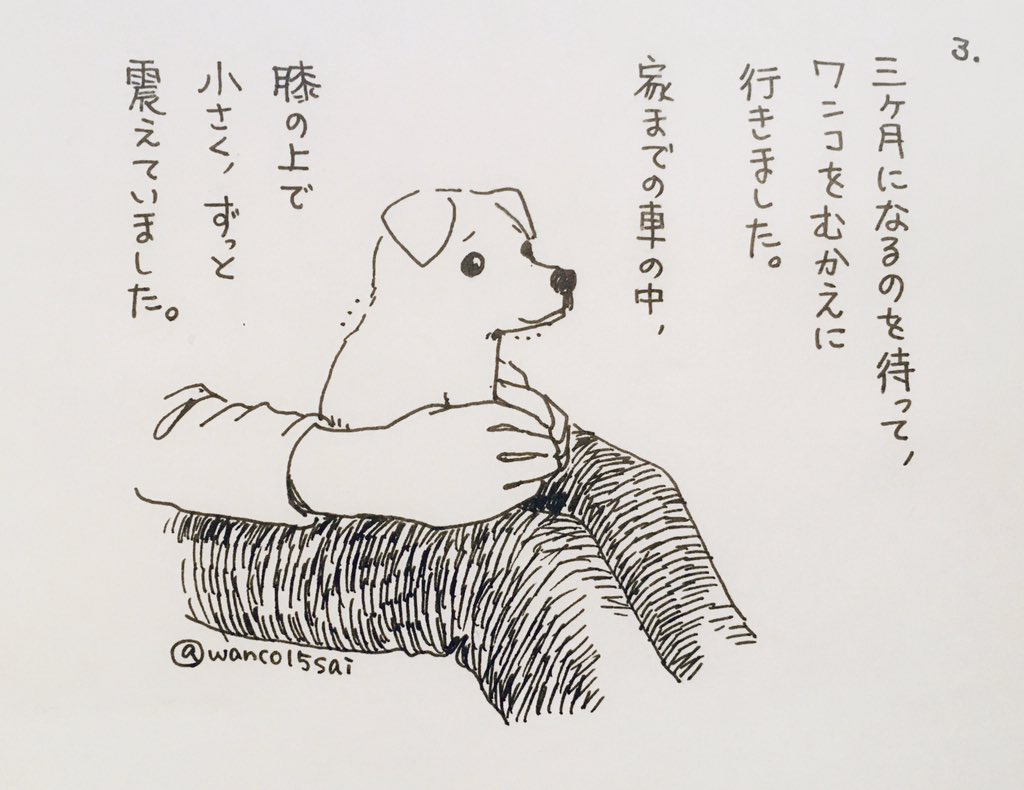 3.
三ヶ月になるのを待って、
ワンコをむかえに
行きました。
家までの車の中、
膝の上で
小さく、ずっと
震えていました。
@wanco15sai